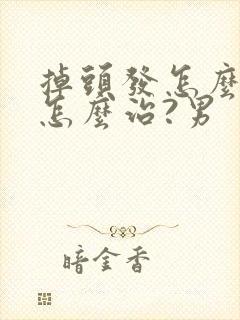 掉頭發怎麼
怎麼治?男
暗金香